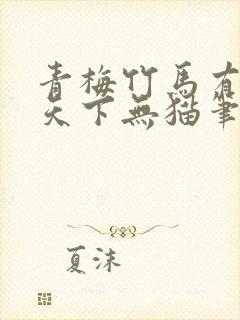 青梅竹馬有
天下無猫筆
夏沫